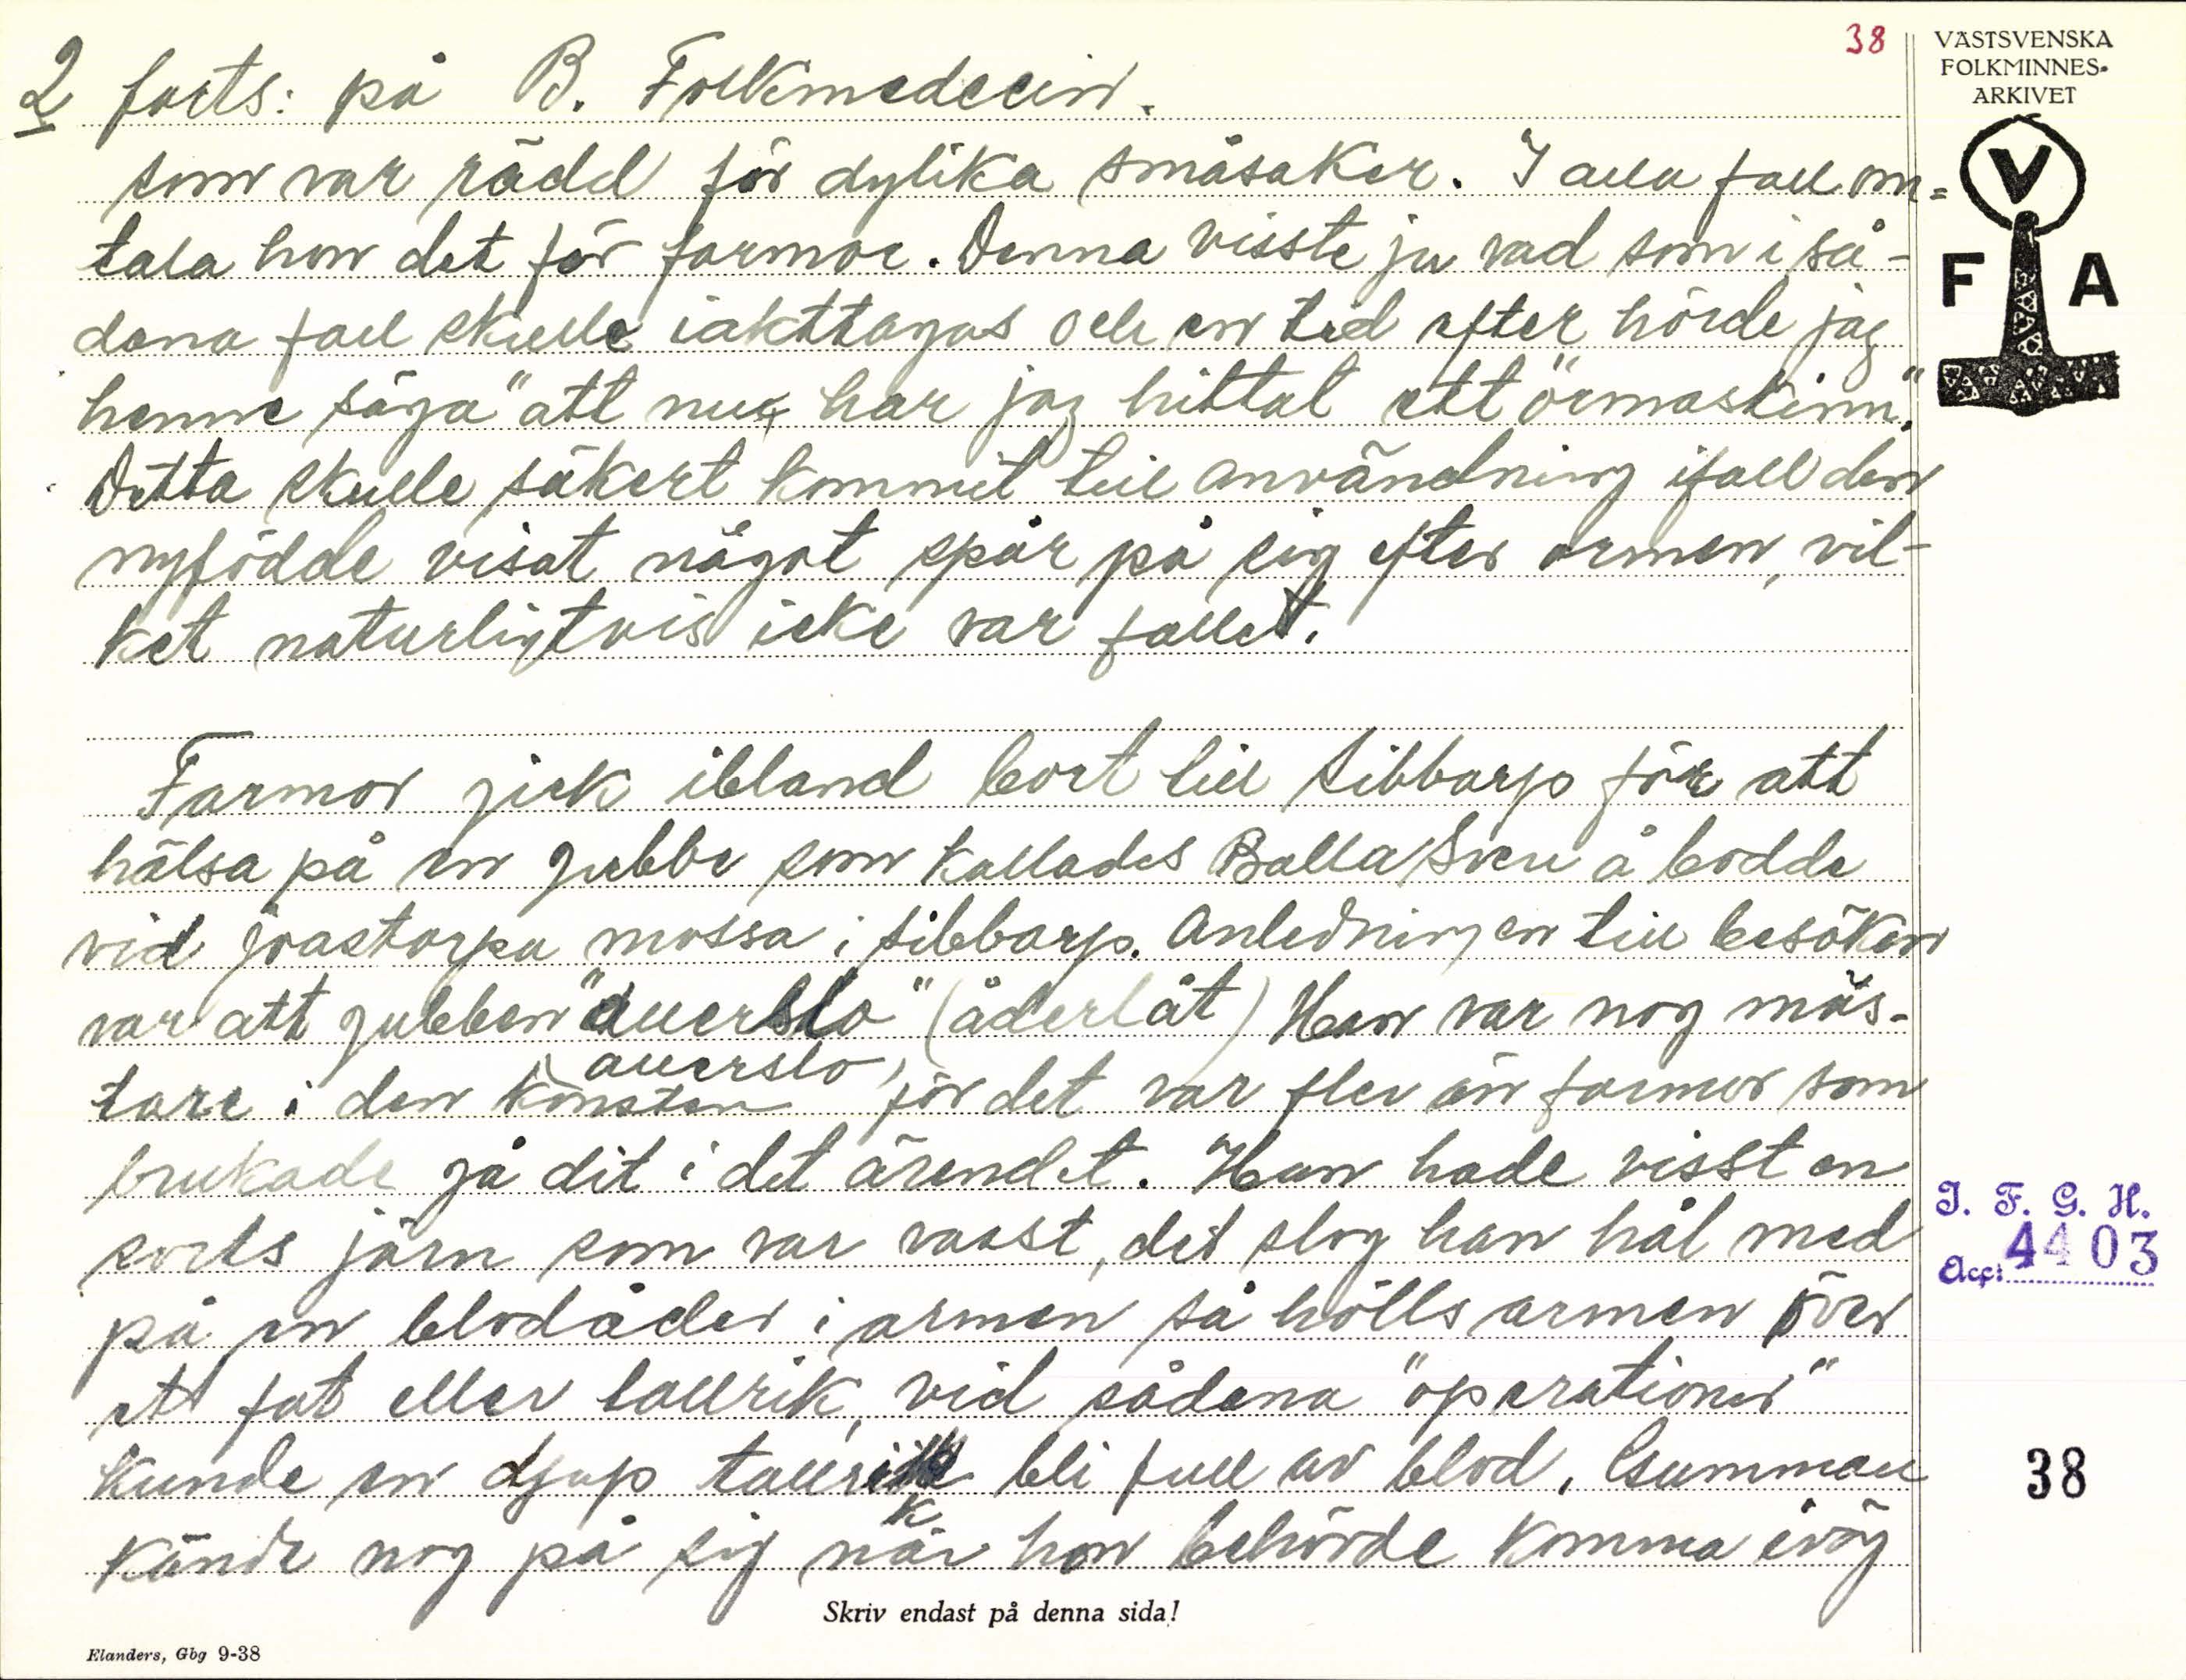 38
VÄSTSVENSKA
FOLKMINNES-
ARKIVET
V
F A
2 forts: på B. Folkmedecin.
som var rädd för dylika småsaker. I alla fall om=
tala hon det för farmor. Denna visste ju vad som i så-
dana fall skulle iakttagas och en tid efter hörde jag
henne säga "att nu har jag hittat ett "ormaskinn".
Detta skulle säkert kommit till användning ifall den
nyfödde visat något spår på sig efter ormen, vil-
ket naturligtvis icke var fallet.
Farmor gick ibland bort till Sibbarp för att
hälsa på en gubbe som kallades Balla Sven å bodde
vid joastorpa mossa i Sibbarp. Anledningen till besöken
var att gubben "auerslo" (åderlåt) Han var nog mäs-
auerslo
tare i den konsten för det var fler än farmor som
brukade gå dit i det ärendet. Han hade visst en
sorts järn som var vasst, det slog han hål med
på en blodåder i armen så hölls armen över
ett fat eller tallrik, vid sådana "operationer"
kunde en djup tallrik bli full av blod. Gumman
kände nog på sig när hon behövde komma iväg
I. F. G. H.
Acc: 4403
38
Skriv endast på denna sida!
Elanders, Gbg 9-38